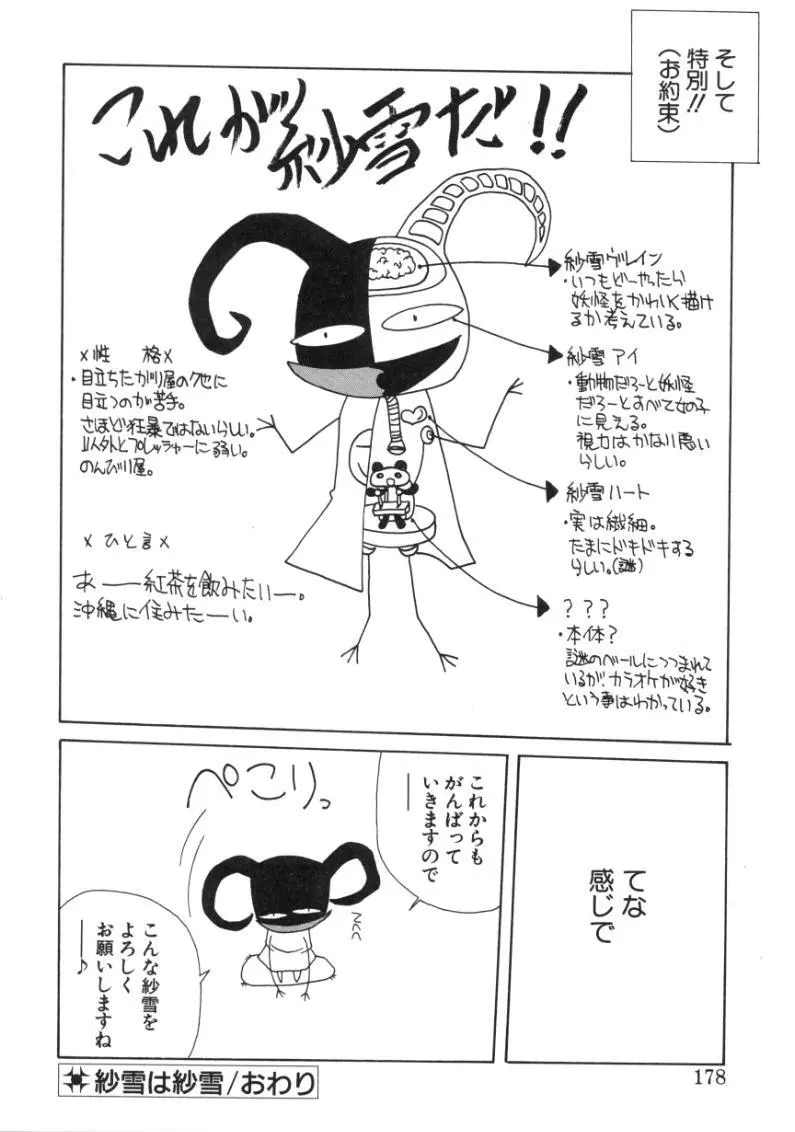 そして
特別!!
(お約束)
これが紗雪だ!!
紗雪ヴレイン
・いつもどーやったら
妖怪をかわいく描け
るか考えている。
紗雪 アイ
・動物だろーと妖怪
だろーとすべて女の子
に見える。
視力はかなり悪い
らしい。
紗雪 ハート
・実は繊細。
たまにドキドキする
らしい。(謎)
???
・本体?
謎のベールにつつまれて
いるが、カラオケが好き
という事はわかっている。
×性 格×
・目立ちたがり屋のクセに
目立つのが苦手。
さほど狂暴ではないらしい。
以外とプレッシャーに弱い。
のんびり屋。
×ひと言×
あーー紅茶を飲みたいー。
沖縄に住みたーーい。
てな
感じで
これからも
がんばって
いきますので
――
ぺこりっ
こんな紗雪を
よろしく
お願いしますね
――♪
紗雪は紗雪/おわり
178